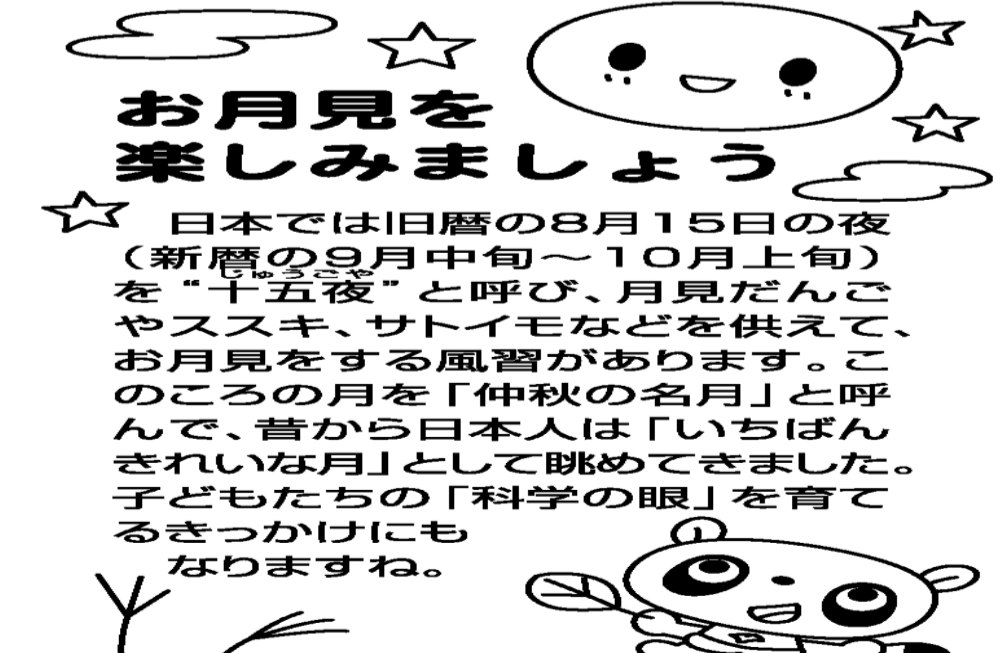 お月見を
楽しみましょう
日本では旧暦の8月15日の夜
(新暦の9月中旬~10月上旬)
じゅうごや
を“十五夜”と呼び、月見だんご
やススキ、サトイモなどを供えて、
お月見をする風習があります。こ
のころの月を「仲秋の名月」と呼
んで、昔から日本人は「いちばん
きれいな月」として眺めてきました。
子どもたちの「科学の眼」を育て
るきっかけにも
なりますね。